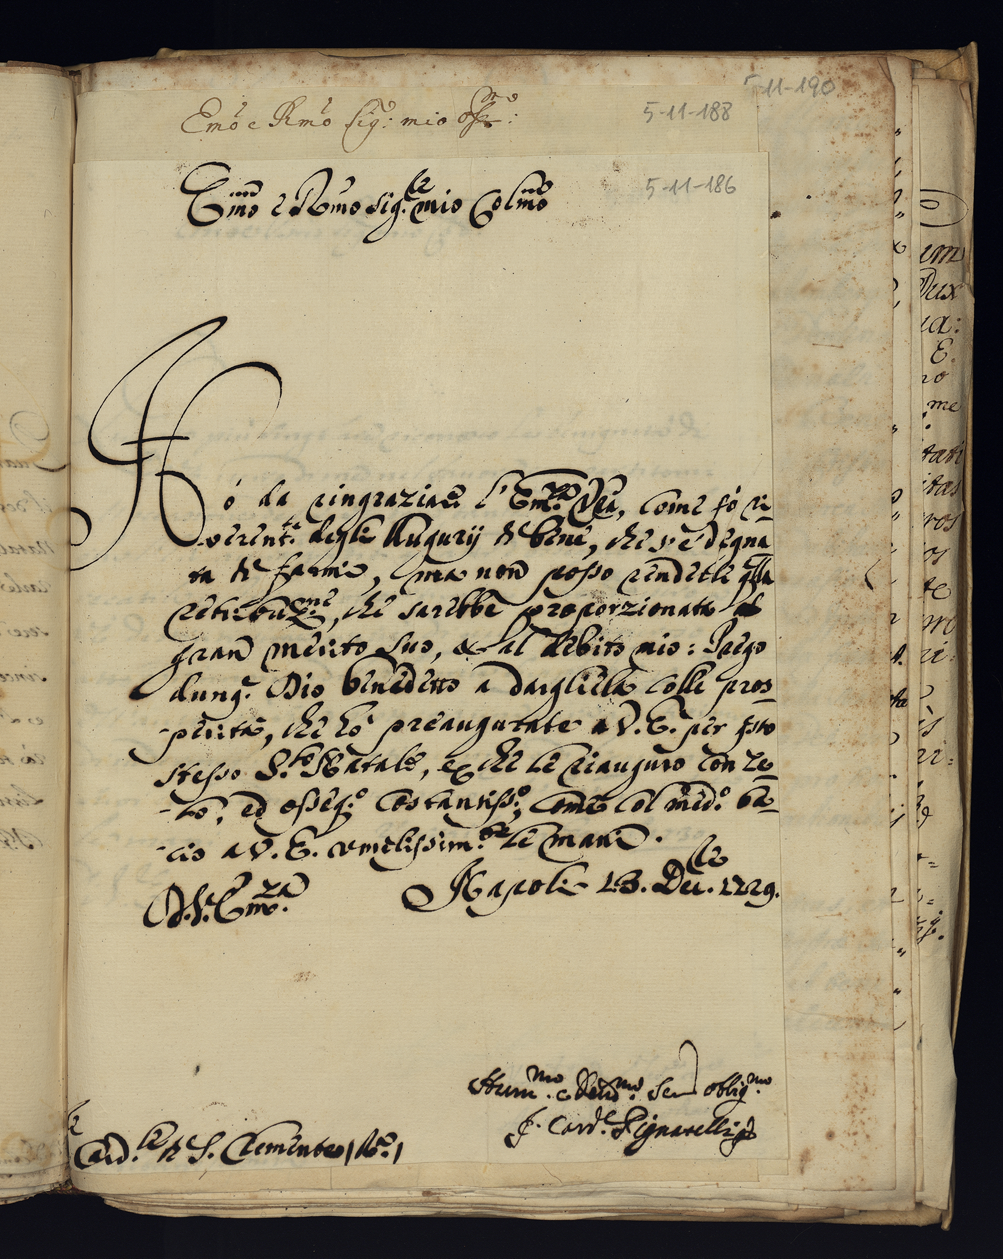 5-11-190
Em̃o e Rm̃o Sig: mio
5-11-188
5-11-186
Em̃o e Rm̃o Sig.re mio Colm̃o
Hó da ringraziare l'Em.za Vrã, come fò ri-
-verent.te degle Augurij di bene, che s'è degna
ta di farmi, ma non posso renderle q̃lla
retribuz.ne, che sarebbe proporzionata al
gran merito suo, & al debito mio: Prego
dunq. Dio benedetto a dargliela colle pros-
-perità, che hò preaugurate a V. E. per q̃sto
stesso S.to Natale, e che le riauguro con ze-
-lo, ed osseq.o costantiss.o, come col mẽd.o ba-
-cio a V. E. umilissim.te le mani.
Di V. Em.za
Napoli 13. Dec.re 1729.
Hum.mo e Devm.o Ser oblig.mo
F. Card.le Pignatelli
Card.le di S. Clemente